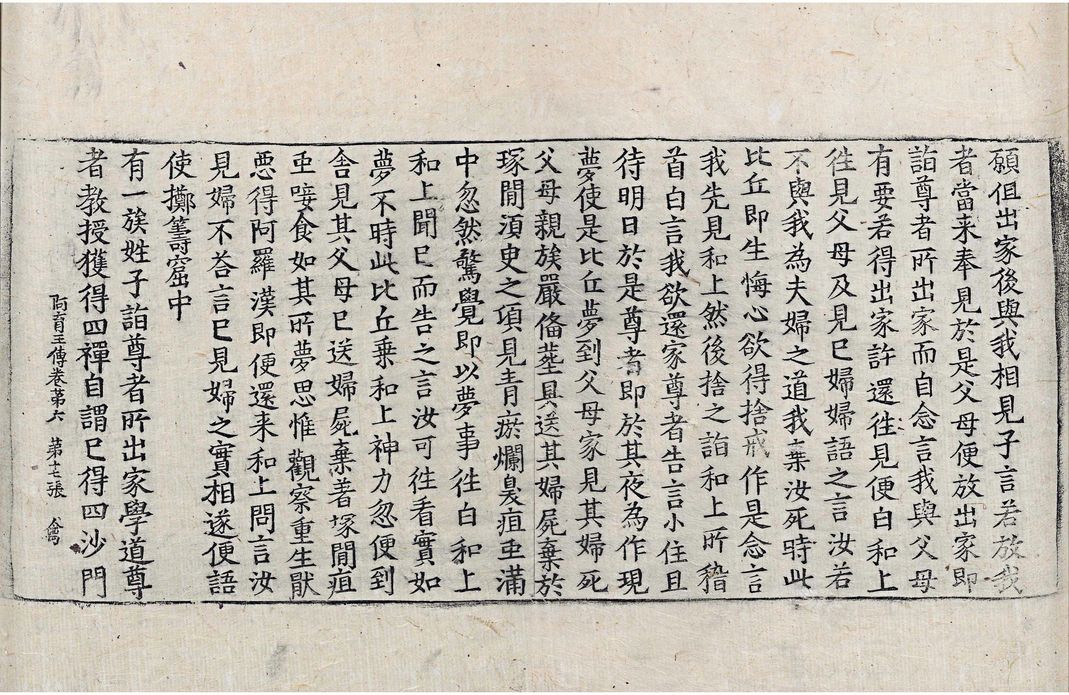 願但出家後與我相見子言若放我
者當来奉見於是父母便放出家即
詣尊者所出家而自念言我與父母
有要若得出家許還往見便白和上
徃見父母及見巳婦婦語之言汝若
不與我為夫婦之道我棄汝死時此
比丘即生悔心欲得捨戒作是念言
我先見和上然後捨之詣和上所稽
首白言我欲還家尊者告言小住且
待明日於是尊者即於其夜為作現
夢使是比丘夢到父母家見其婦死
父母親族嚴俻塟具送其婦屍棄於
塚閒湏臾之頃見青瘀爛臭疽䖝滿
中忽然驚覺即以夢事徃白和上
和上聞巳而告之言汝可徃看實如
夢不時此比丘乗和上神力忽便到
舍見其父母巳送婦屍棄著塚閒疽
䖝唼食如其所夢思惟觀察重生猒
惡得阿羅漢即便還来和上問言汝
見婦不荅言巳見婦之實相遂便語
使擲籌窟中
有一族姓子詣尊者所出家學道尊
阿育王傳卷第六　第十三張　禽
者教授獲得四禪自謂巳得四沙門